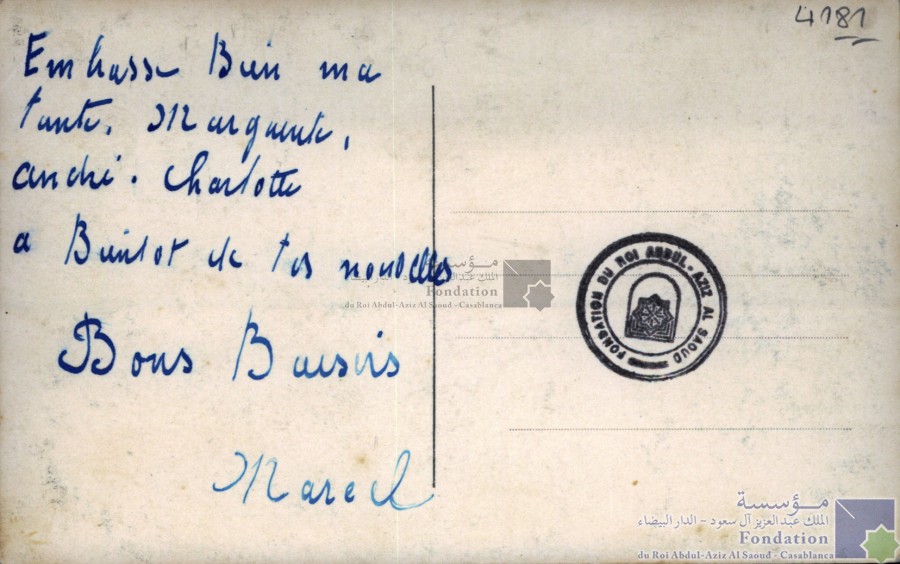 4181
Embrasse Bien ma
tante, Marguerite,
André. Charlotte
a Bientot de tes nouvelles
Bons Baisers
Marcel
FONDATION DU ROI ABDUL-AZIZ AL SAOUD
مؤسسة
الملك عبد العزيز آل سعود - الدار البيضاء
Fondation
du Roi Abdul-Aziz Al Saoud - Casablanca
مؤسسة
الملك عبد العزيز آل سعود - الدار البيضاء
Fondation
du Roi Abdul-Aziz Al Saoud - Casablanca